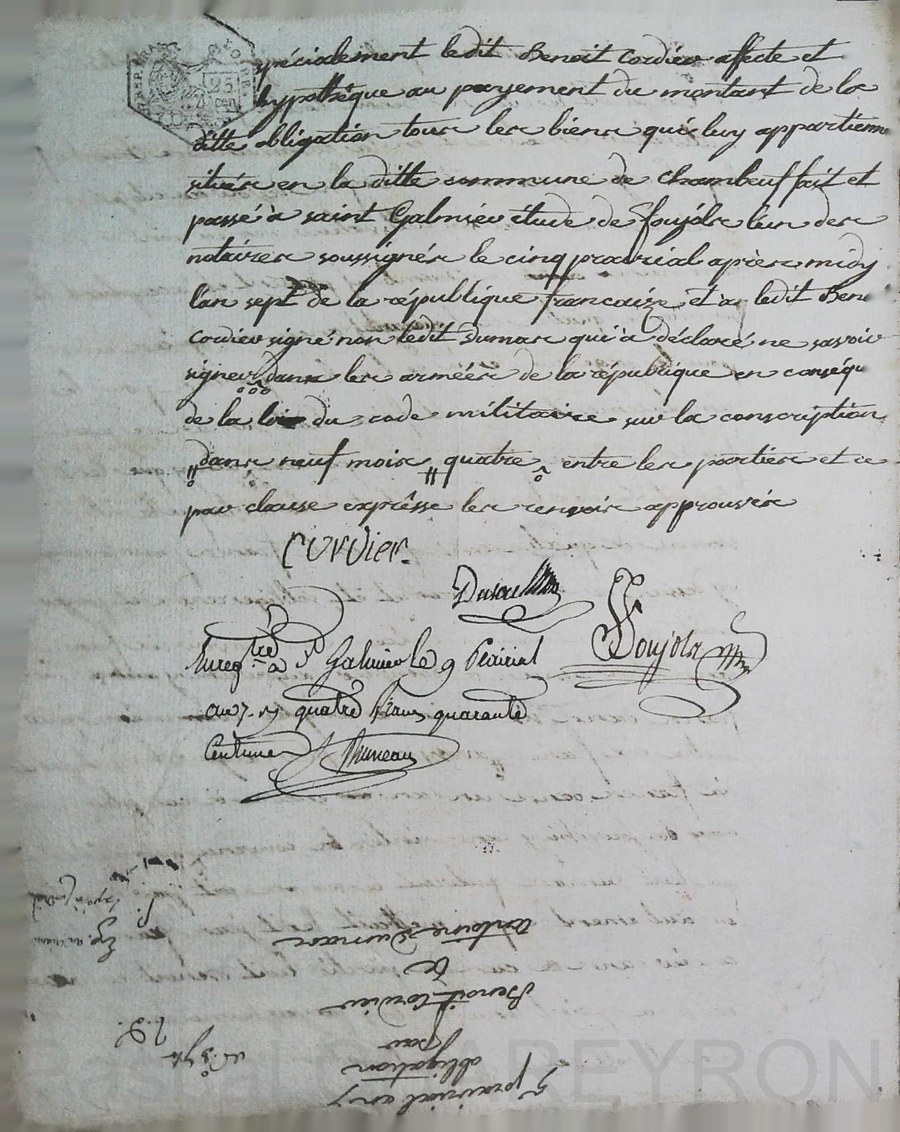 spécialement ledit Benoit Cordier affecte et
hypothêque au payement du montant de la
ditte obligation tous les biens qui luy appartienne
situés en la ditte commune de Chambeuf fait et
passé à saint Galmier étude de foujols l'un des
notaires soussignés le cinq prairial après midy
l'an sept de la république francaise et a ledit Ben
Cordier signé non ledit Dumas qui a déclaré ne savoir
signer dans les armées de la république en conséqu
de la loi du code militaire sur la conscription
dans neuf mois quatre entre les parties et ce
par clause expresse les renvois approuvés
Cordier
Foujols
Enreg tré à St Galmier le 9 Prairial
an 7. quatre francs quarante
Centimes Bruneau
5 prairial an 7
obligation
par
Benoit Cordier
à
antoine Dumas
25
cen
REYRON